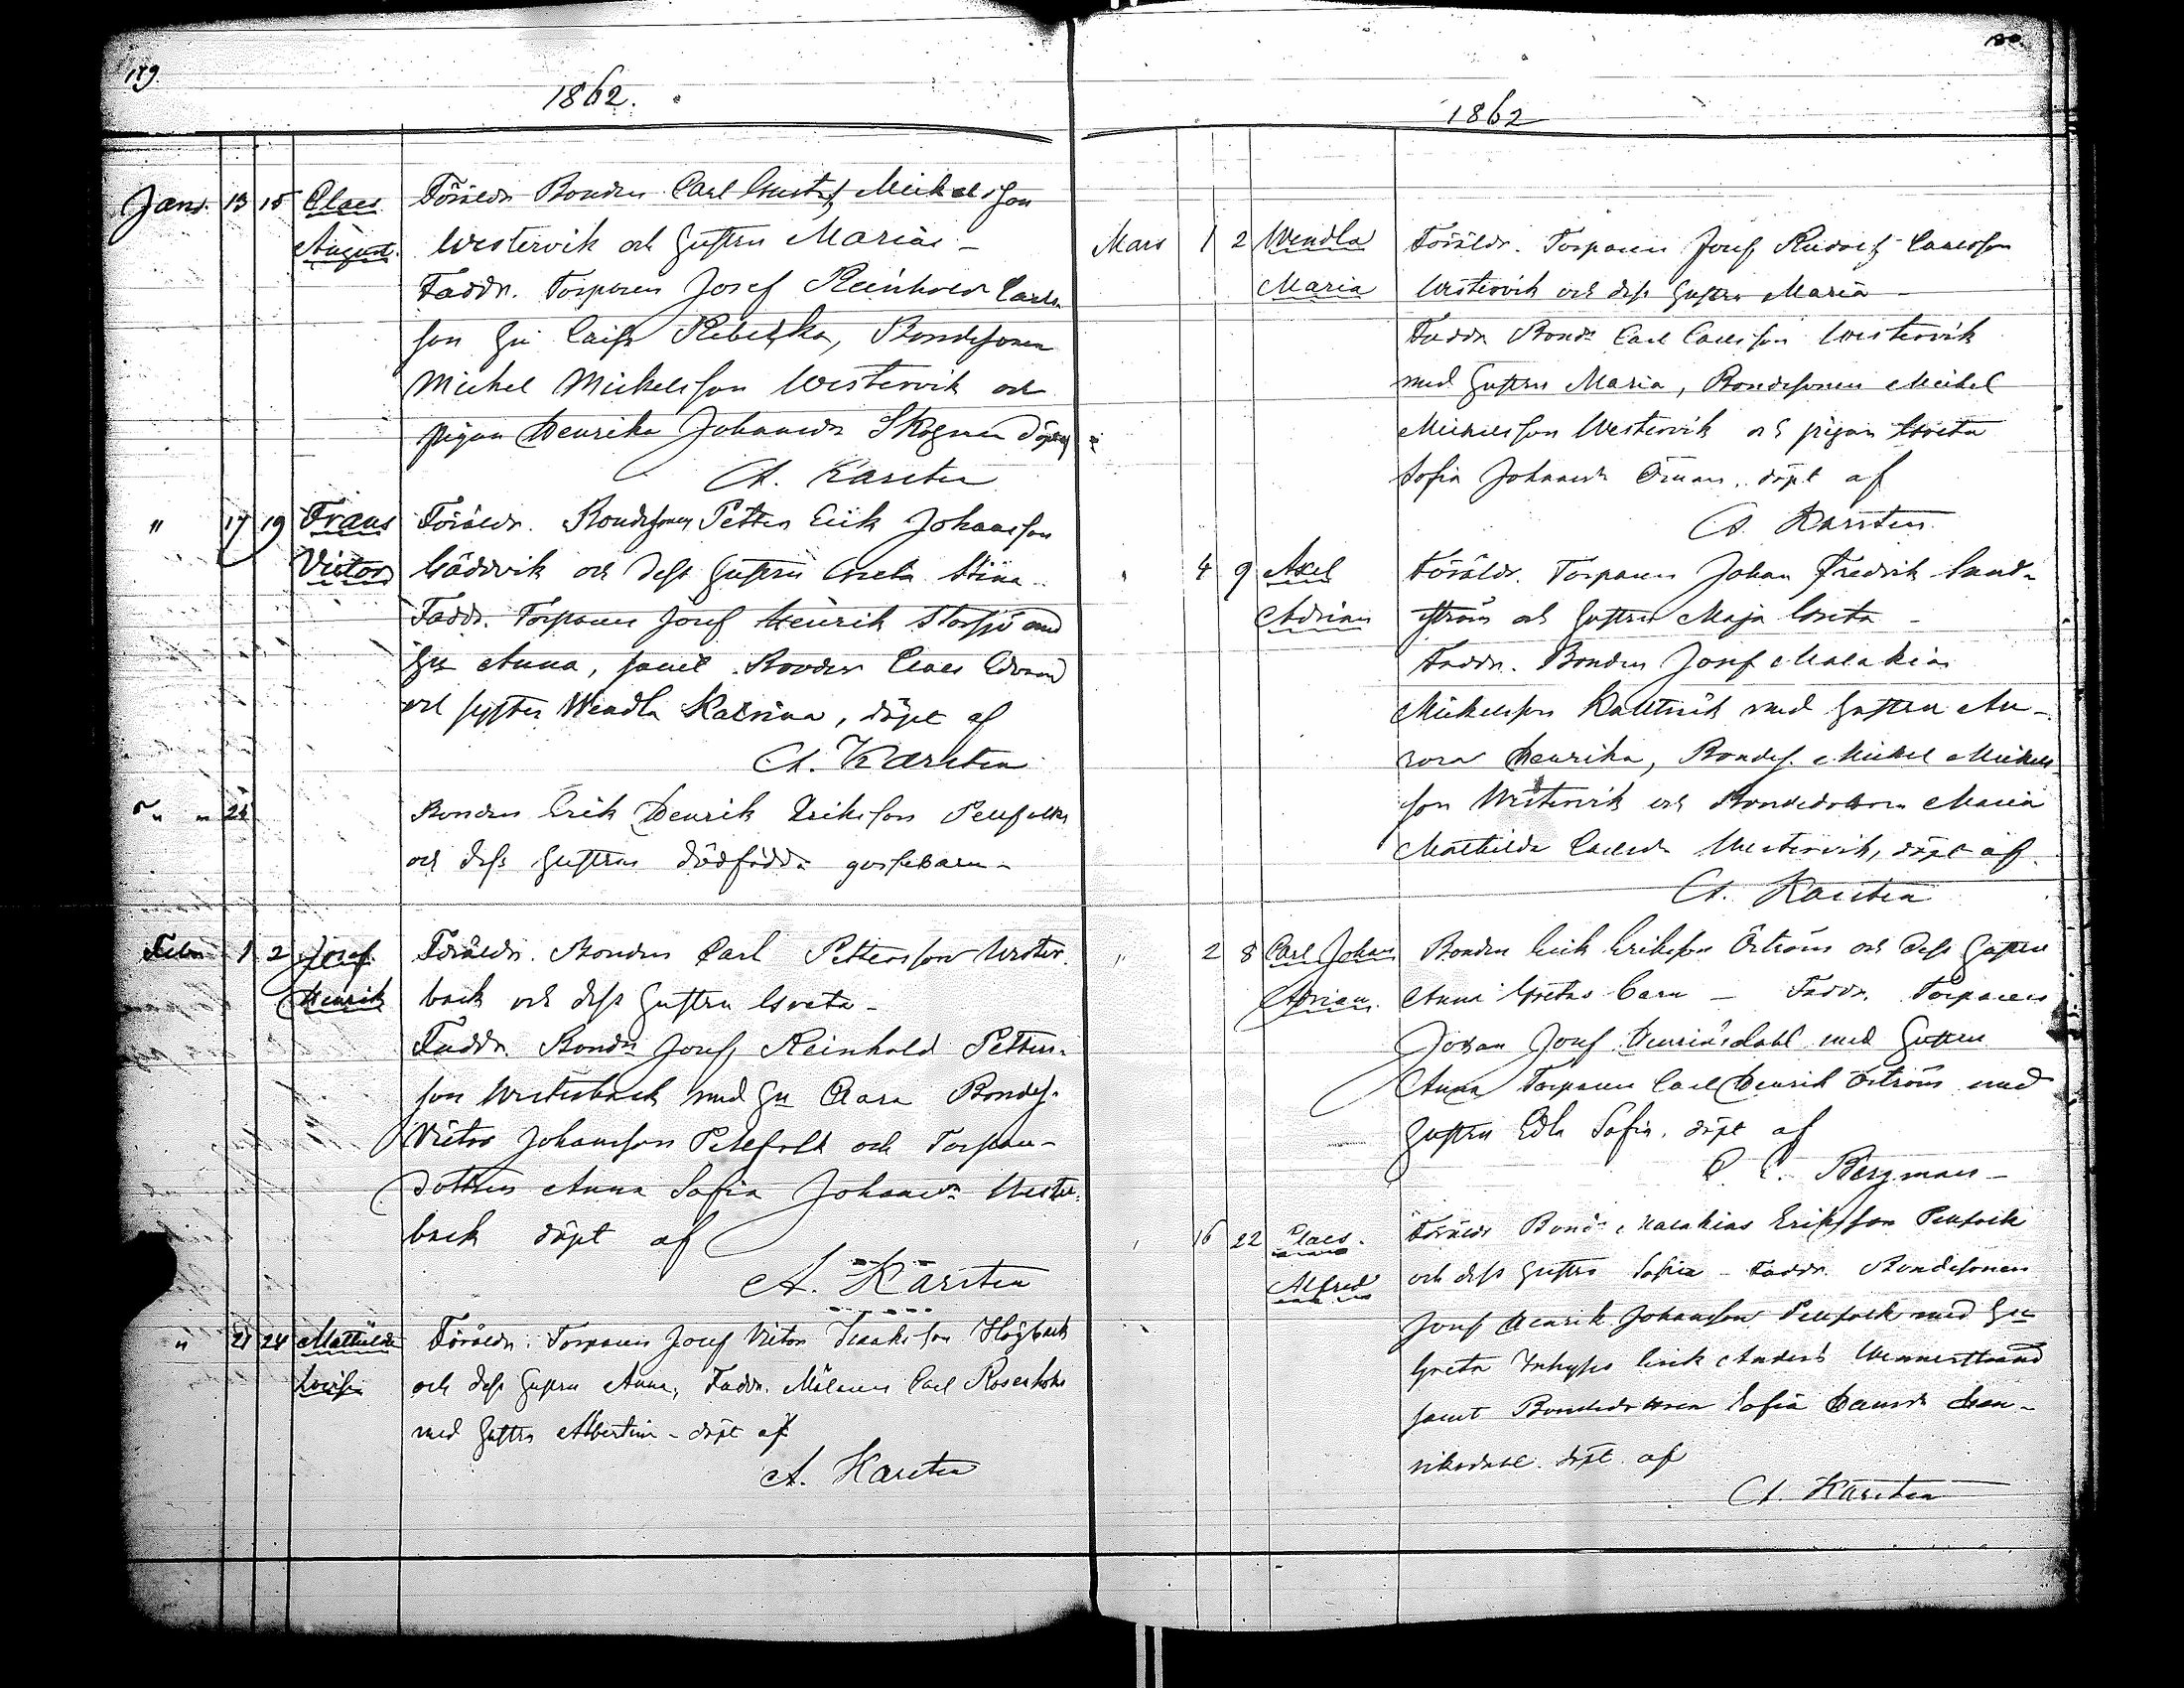 189.
1862.
Janr. 13 15 Claes Föräldr Bonden Carl Gustaf Mickelsson
August. Westervik och hustru Maria –
Faddr. Torparen Josef Reinhold Carls-
son hu Caisa Rebecka, Bondesonen
Mickel Mickelsson Westervik och
pigan Henrika Johansdr Skogman döpt af
A. Karsten
" 17 19 Frans Föräldr. Bondesonen Petter Erik Johansson
Victor Gäddvik och dess hustru Greta Stina
Faddr. Torparen Josef Henrik Storsjö med
hu Anna, samt Claes Edvard
och syster Wendla Katrina, döpt af
A. Karsten
" 24 Bonden Erik Henrik Eriksson Pellfolk
och dess hustrus dödfödda gossebarn –
Febr 1 2 Josef Föräldr. Bonden Carl Pettersson Wester-
Henrik back och dess hustru Greta –
Faddr. Bondn Josef Reinhold Petters-
son Westerback med hu Clara Bondes.
Victor Johansson Pellfolk och Torpare-
dottren Anna Sofia Johansdr Wester-
back döpt af
A. Karsten
" 21 24 Mathilda Föräldr. Torparen Josef Victor Isaksson Högback
Lovisa och dess hustru Anna, Faddr. Carl
med hustru Albertina – döpt af
A. Karsten
190.
1862
Mars 1 2 Wendla Föräldr. Torparen Josef Rudolf Carlsson
Maria Westervik och dess hustru Maria –
Faddr Bondn Carl Carlsson Westervik
med hustru Maria, Bondesonen Mickel
Mickelsson Westervik och pigan Greta
Sofia Johansdr Öman, döpt af
A. Karsten
" 4 9 Axel Föräldr. Torparen Johan Fredrik Sand-
Adrian ström och hustru Maja Greta –
Faddr. Bonden Josef Malakias
Mickelsson med hustru Au-
rora Henrika, Bondes. Mickel Mickels-
son Westervik och Bondedottren Maria
Mathilda Carlsdr Westervik, döpt af
A. Karsten
" 2 8 Carl Johan Bonden Erik Eriksson Öström och dess hustru
Adrian. Anna Gretas barn – Faddr. Torparen
Johan Josef Henriksdahl med hustru
Anna Torparen Carl Henrik Öström med
hustru Edla Sofia, döpt af
Bergman –
" 16 22 Claes Föräldr Bondn Malakias Eriksson Pellfolk
Alfred och dess hustru Sofia – Faddr. Bondesonen
Josef Henrik Johansson Pellfolk med hu
Greta Inhyses Erik Anders Wennerstrand
samt Bondedottren Sofia Hen-
riksdahl döpt af
A. Karsten